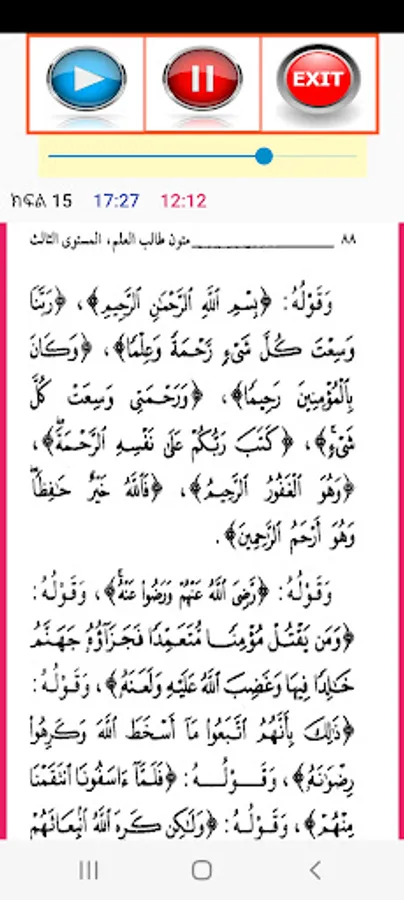 EXIT
ክፍል 15 17:27 12:12
٨٨ متون طالب العلم، المستوى الثالث
وَقَوْلُهُ: ﴿بِسْمِ ٱللَّهِ ٱلرَّحْمَٰنِ ٱلرَّحِيمِ﴾، ﴿رَبَّنَا
وَسِعْتَ كُلَّ شَىْءٍ رَّحْمَةً وَعِلْمًا﴾، ﴿وَكَانَ
بِٱلْمُؤْمِنِينَ رَحِيمًا﴾، ﴿وَرَحْمَتِى وَسِعَتْ كُلَّ
شَىْءٍ﴾، ﴿كَتَبَ رَبُّكُمْ عَلَىٰ نَفْسِهِ ٱلرَّحْمَةَ﴾،
﴿وَهُوَ ٱلْغَفُورُ ٱلرَّحِيمُ﴾، ﴿فَٱللَّهُ خَيْرٌ حَٰفِظًا
وَهُوَ أَرْحَمُ ٱلرَّٰحِمِينَ﴾.
وَقَوْلُهُ: ﴿رَّضِىَ ٱللَّهُ عَنْهُمْ وَرَضُوا۟ عَنْهُ﴾، وَقَوْلُهُ:
﴿وَمَن يَقْتُلْ مُؤْمِنًا مُّتَعَمِّدًا فَجَزَآؤُهُۥ جَهَنَّمُ
خَٰلِدًا فِيهَا وَغَضِبَ ٱللَّهُ عَلَيْهِ وَلَعَنَهُۥ﴾، وَقَوْلُهُ:
﴿ذَٰلِكَ بِأَنَّهُمُ ٱتَّبَعُوا۟ مَآ أَسْخَطَ ٱللَّهَ وَكَرِهُوا۟
رِضْوَٰنَهُۥ﴾، وَقَوْلُهُ: ﴿فَلَمَّآ ءَاسَفُونَا ٱنتَقَمْنَا
مِنْهُمْ﴾، وَقَوْلُهُ: ﴿وَلَٰكِن كَرِهَ ٱللَّهُ ٱنۢبِعَاثَهُمْ